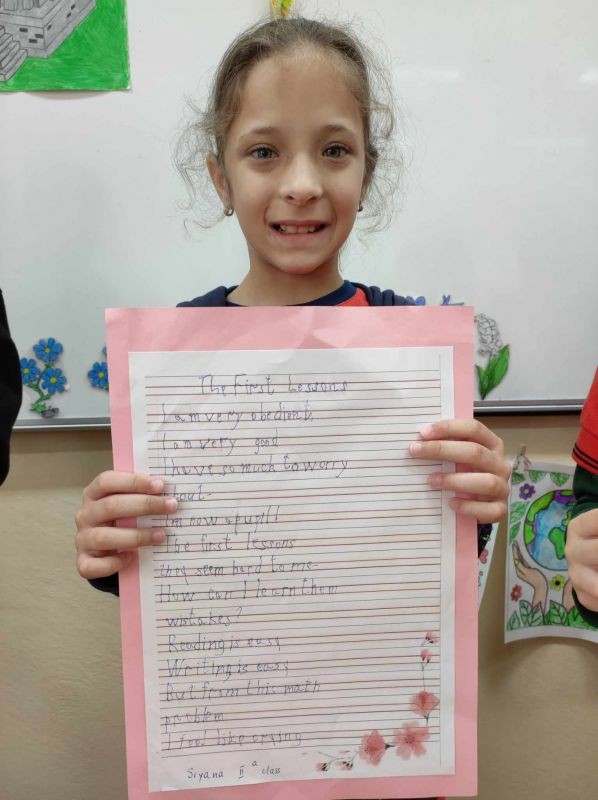 The First Lessons
I am very obedient,
I am very good
I have so much to worry
about-
I'm now a pupil!
The first lessons
they seem hard to me-
How can I learn them
mistakes?
Reading is easy
Writing is easy
But from this math
problem
I feel like crying
Siyana II a class